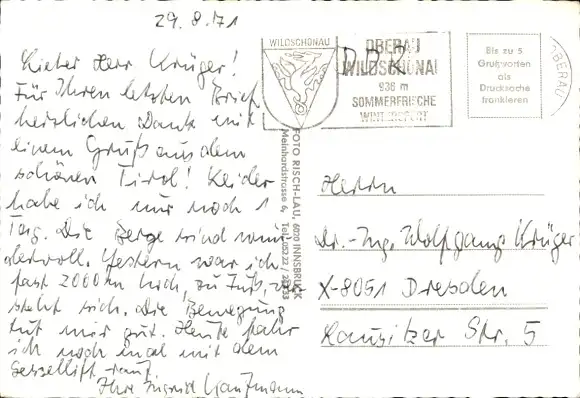 29.8.71
Lieber Herr Krüger!
Für Ihren letzten Brief
herzlichen Dank mit
einem Gruß aus dem
schönen Tirol! Leider
habe ich nur noch 1
Tag. Die Berge sind wun-
dervoll. Gestern war ich
fast 2000 m hoch, zu Fuß, ver-
steht sich. Die Bewegung
tut mir gut. Heute fahr
ich noch mal mit dem
Sessellift rauf.
Ihre Ingrid Kaufmann
WILDSCHÖNAU
OBERAU
WILDSCHÖNAU
936 m
SOMMERFRISCHE
WINTERSPORT
DDR
Bis zu 5
Grußworten
als
Drucksache
frankieren
OBERAU
FOTO RISCH-LAU, 6020 INNSBRUCK
Meinhardstrasse 6, Tel. 05222 /
Herrn
Dr.-Ing. Wolfgang Krüger
X-8051 Dresden
Lausitzer Str. 5